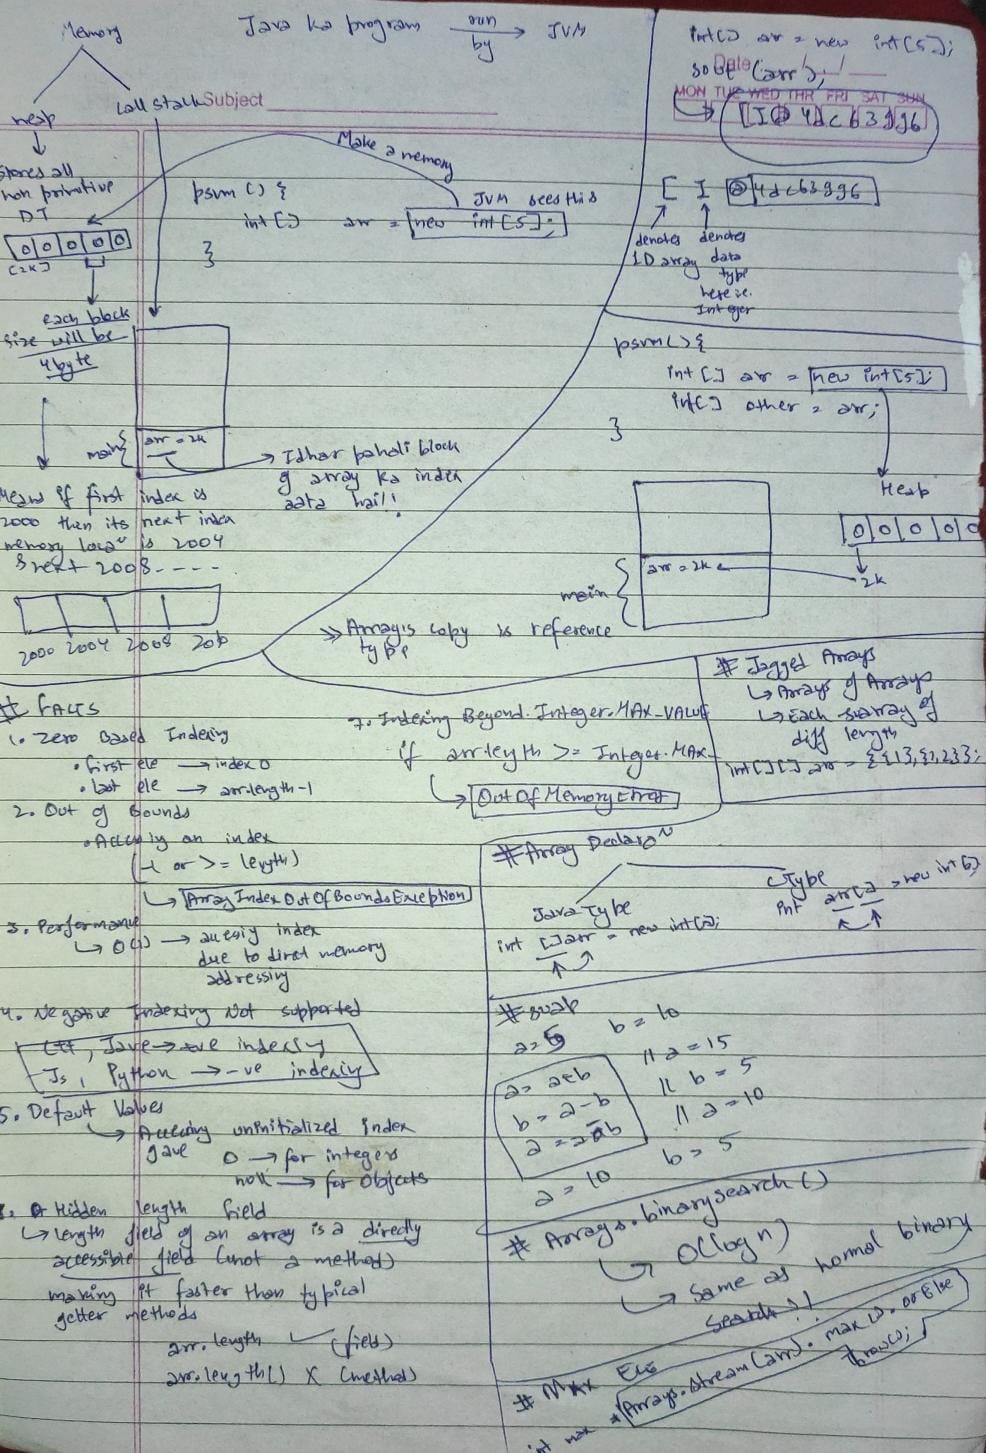 Memory
Java ka program run by → JVM
Heap
Call stack
Subject
Stores all
non primitive
DT
0 0 0 0 0
[2K]
each block
size will be
4 byte
Make a memory
psvm () {
JVM sees this
int [] arr = new int [5];
}
main { arr = 2k
→ Idhar pahali block
of array ka index
aata hai!!
Means if first index is
2000 then its next index
memory loca^n is 2004
& next 2008 - - - -
2000 2004 2008 20
int[] arr = new int[5];
sout (arr);
Date / /
MON TUE WED THR FRI SAT SUN
[I@4dc63996
[ I @4dc63996
denotes
1D array
denotes
data
type
here i.e.
Integer
psvm() {
int [] arr = new int[5];
int[] other = arr;
}
Heap
0 0 0 0 0
2k
main { arr = 2k
>> Array's copy is reference
type
# Facts
1. Zero Based Indexing
• first ele → index 0
• last ele → arr.length-1
2. Out of Bounds
• Accessing an index
(-1 or >= length)
↳ ArrayIndexOutOfBoundsException
3. Performance
↳ O(1) → accessing index
due to direct memory
addressing
4. Negative Indexing Not supported
C++, Java → +ve indexing
Js, Python → -ve indexing
5. Default Values
↳ Accessing uninitialized index
gave 0 → for integers
null → for objects
Hidden length field
↳ length field of an array is a directly
accessible field (not a method)
making it faster than typical
getter methods
arr.length ✓ (field)
arr.length() X (method)
7. Indexing Beyond Integer.MAX_VALUE
if arr.length >= Integer.MAX_
↳ OutOfMemoryError
# Jagged Arrays
↳ Arrays of Arrays
↳ Each subarray of
diff length
int[][] arr = {{1},{1,2}};
# Array Declaro^n
Java Type
int []arr = new int[];
C Type
int arr[] = new int[];
# swap
a=5 b=10
a = a+b // a=15
b = a-b // b=5
a = a-b // a=10
a = 10 b = 5
# Arrays.binarySearch()
↳ O(log n)
↳ Same as normal binary
search!!
# Max Ele
int max = Arrays.stream(arr).max().orElse
Throw();